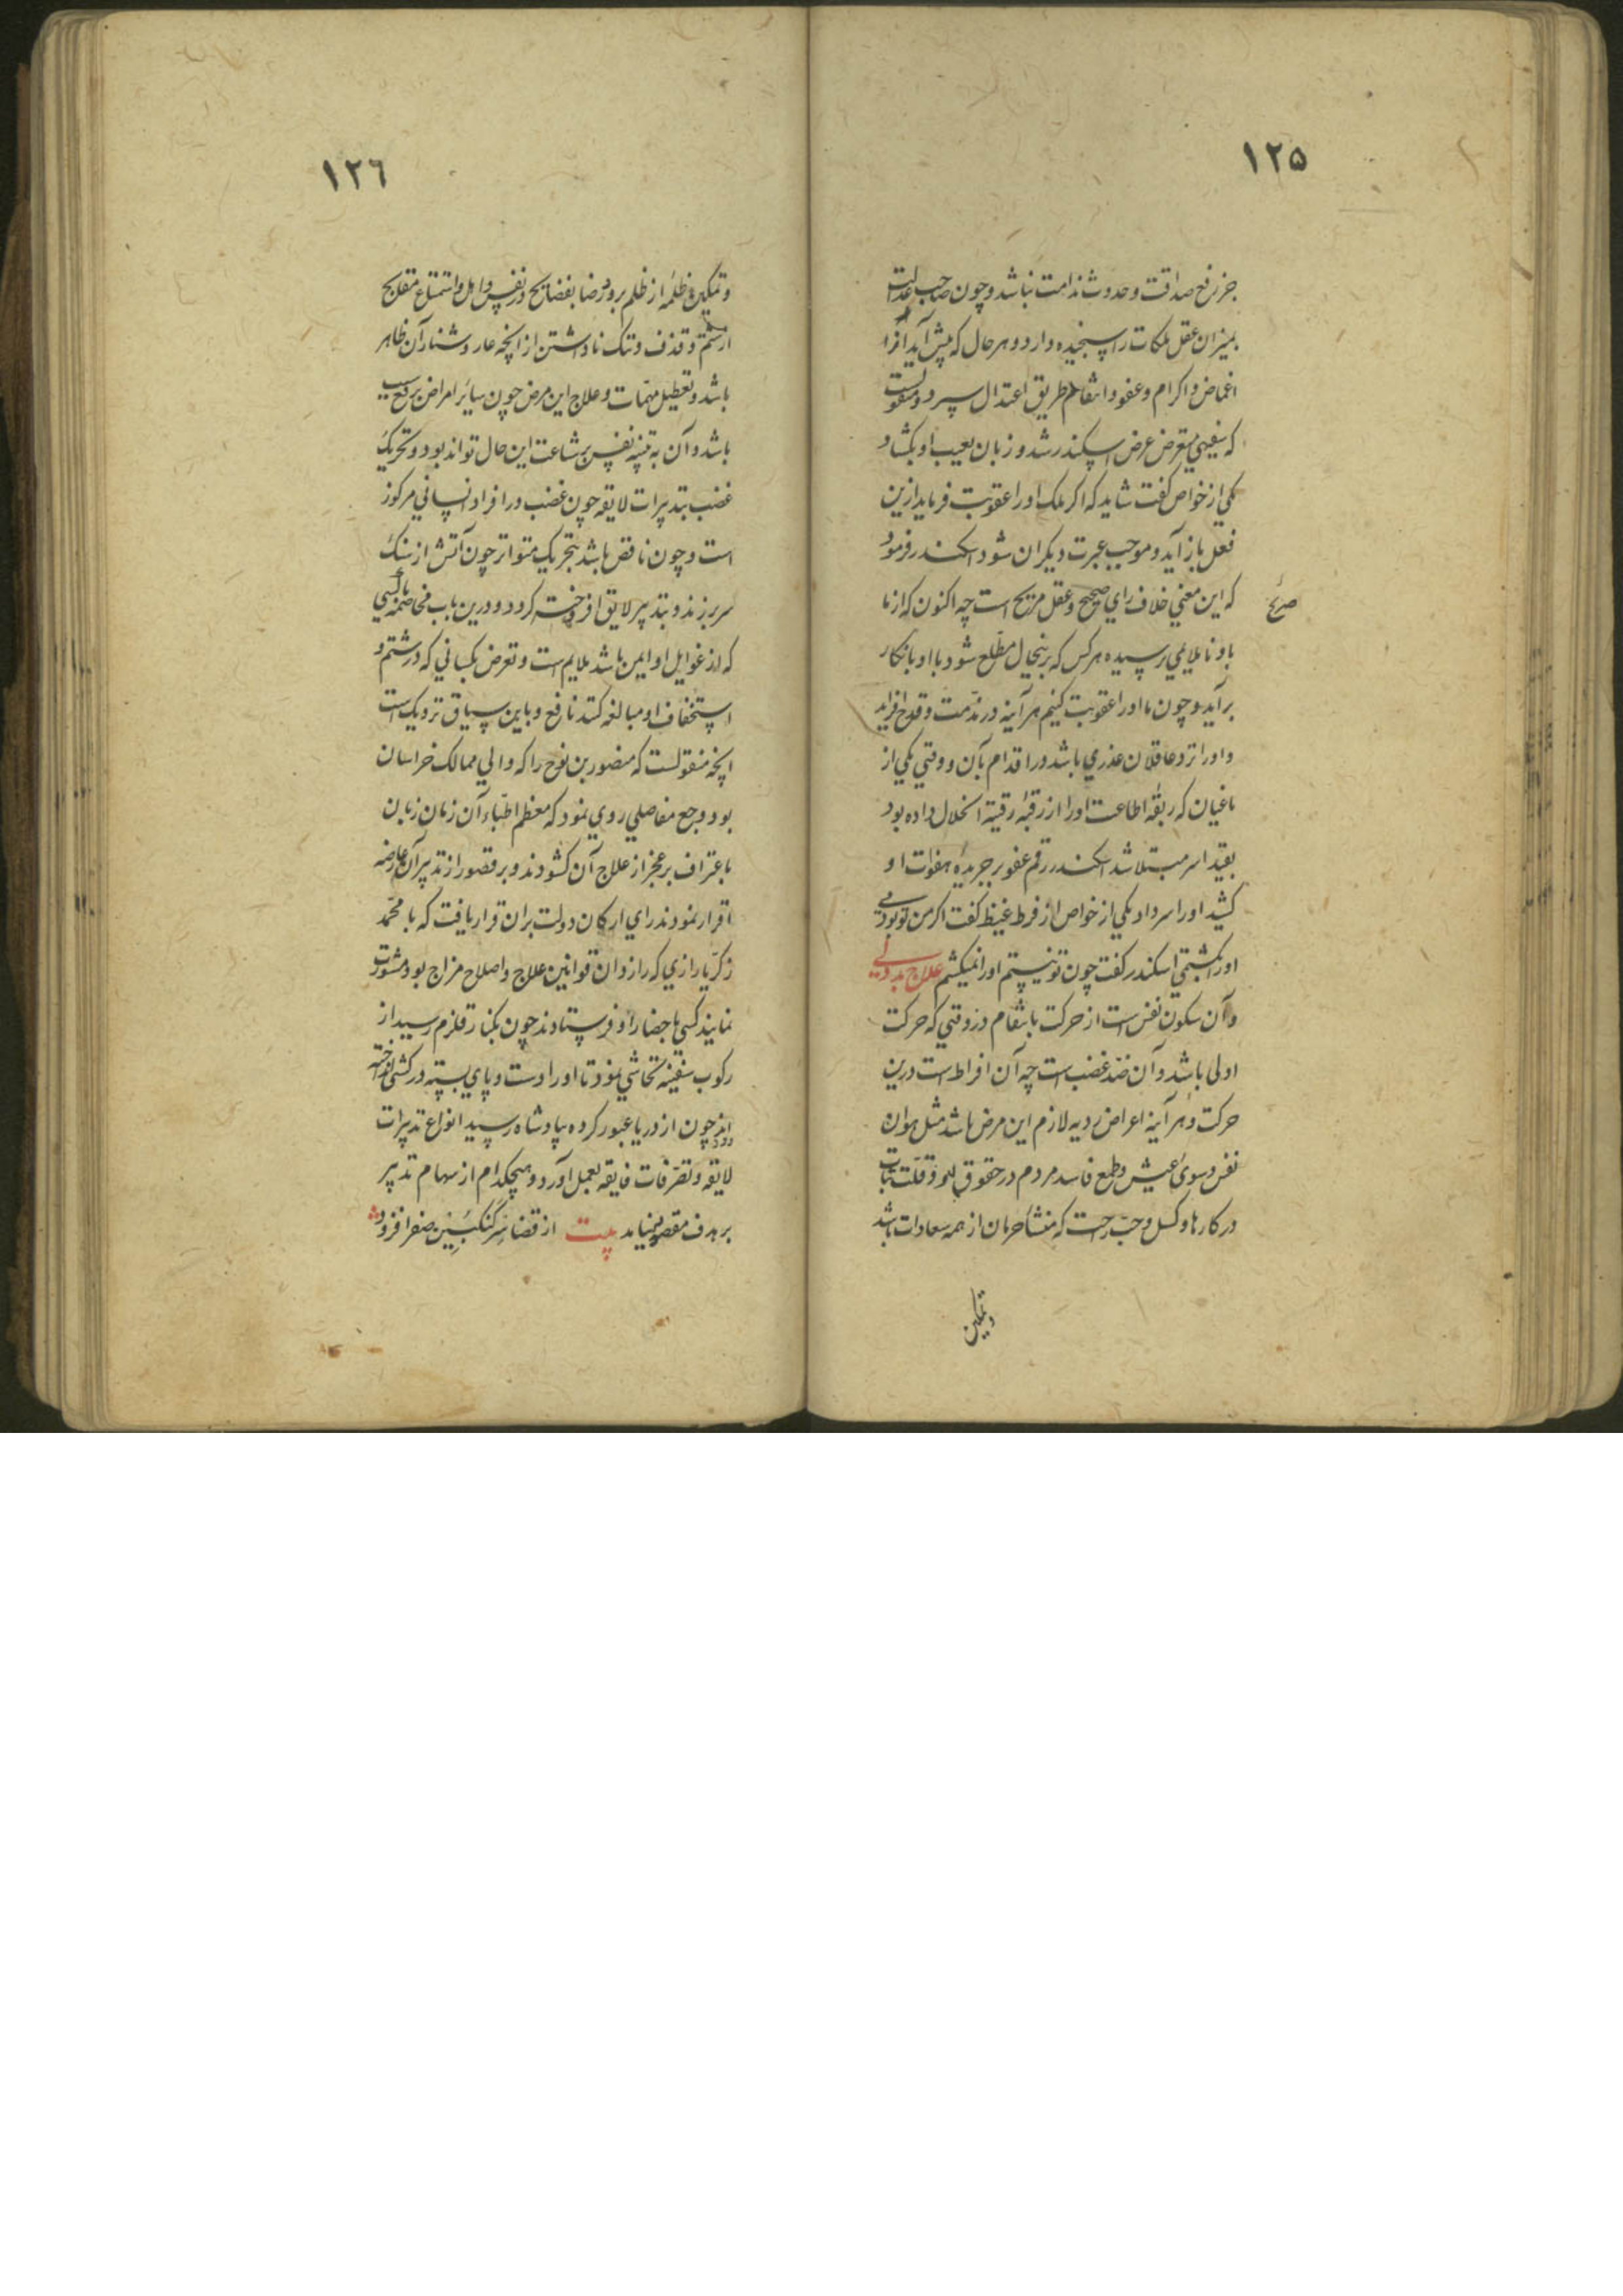 ١٢٥
جز رفع صداقت و حدوث ندامت نباشد و چون صاحب عدالت
بمیزان عقل ملکات را سنجیده دارد و هر حال که پیش آید آنرا
اغماض و اکرام و عفو و انتقام طریق اعتدال سپرد و منقولست
که سفیهی متعرض عرض اسکندر شد و زبان بعیب او بکشاد
یکی از خواص گفت شاید که اگر ملک او را عقوبت فرماید ازین
فعل باز آید و موجب عبرت دیکران شود اسکندر فرمود
که این معنی خلاف رای صحیح و عقل صریح است چه اکنون که از ما
صریح
باو ناملایمی نرسیده هر کس که برینحال مطلع شود با او بانکار
برآید و چون ما او را عقوبت کنیم هر آینه در مذمت و قدح افزاید
و او را نزد عاقلان عذری باشد در اقدام بآن و وقتی یکی از
باغیان که ربقهٔ اطاعت او را از رقبهٔ رقیت انحلال داده بود
بقید اسر مبتلا شد اسکندر رقم عفو بر جریدهٔ هفوات او
کشید او را سر داد یکی از خواص از فرط غیظ گفت اگر من تو بودمی
او را بکشتمی اسکندر گفت چون تو نیستم او را نمیکشم علاج بددلی
و آن سکون نفس است از حرکت بانتقام در وقتی که حرکت
اولی باشد و آن ضد غضب است چه آن افراط است درین
حرکت و هر آینه اعراض ردیه لازم این مرض باشد مثل هوان
نفس و سوی عیش و طمع فاسد مردم در حقوق او و قلت ثبات
در کارها و کسل و حب راحت که منشأ حرمان از همه سعادات باشد
و تمکین
١٢٦
و تمکین ظلمه از ظلم برو و رضا بفضایح در نفس و اهل و استماع مقابح
از شتم و قذف و ننک ناداشتن از انچه عار و شنار آن ظاهر
باشد و تعطیل مهمات و علاج این مرض چون سائر امراض برفع سبب
باشد و آن به تنبیه نفس بر شناعت این حال تواند بود و تحریک
غضب بتدبیرات لایقه چون غضب در افراد انسانی مرکوز
است و چون ناقص باشد بتحریک متواتر چون آتش از سنک
سر بر زند و بتدبیر لایق افروخته کردد و درین باب مخاصمه با کسی
که از غوایل او ایمن باشد ملایم است و تعرض بکسانی که در شتم و
استخفاف او مبالغه کنند نافع و باین سیاق نزدیک است
انچه منقولست که منصور بن نوح را که والی ممالک خراسان
بود وجع مفاصلی روی نمود که معظم اطباء آن زمان زبان
باعتراف بر عجز از علاج آن کشودند و بر قصور از تدبیر آن عارضه
اقرار نمودند رای ارکان دولت بران قرار یافت که با محمد
زکریا رازی که رازدان قوانین علاج و اصلاح مزاج بود مشورت
نمایند کسی باحضار او فرستادند چون بکنار قلزم رسید از
رکوب سفینه تحاشی نمود تا او را دست و پای بسته در کشتی انداختند
چون از دریا عبور کرده بپادشاه رسید انواع تدبیرات
لایقه و تصرفات فایقه بعمل آورد و هیچکدام از سهام تدبیر
بر هدف مقصود نیامد بیت از قضا سرکنکبین صفرا فزود